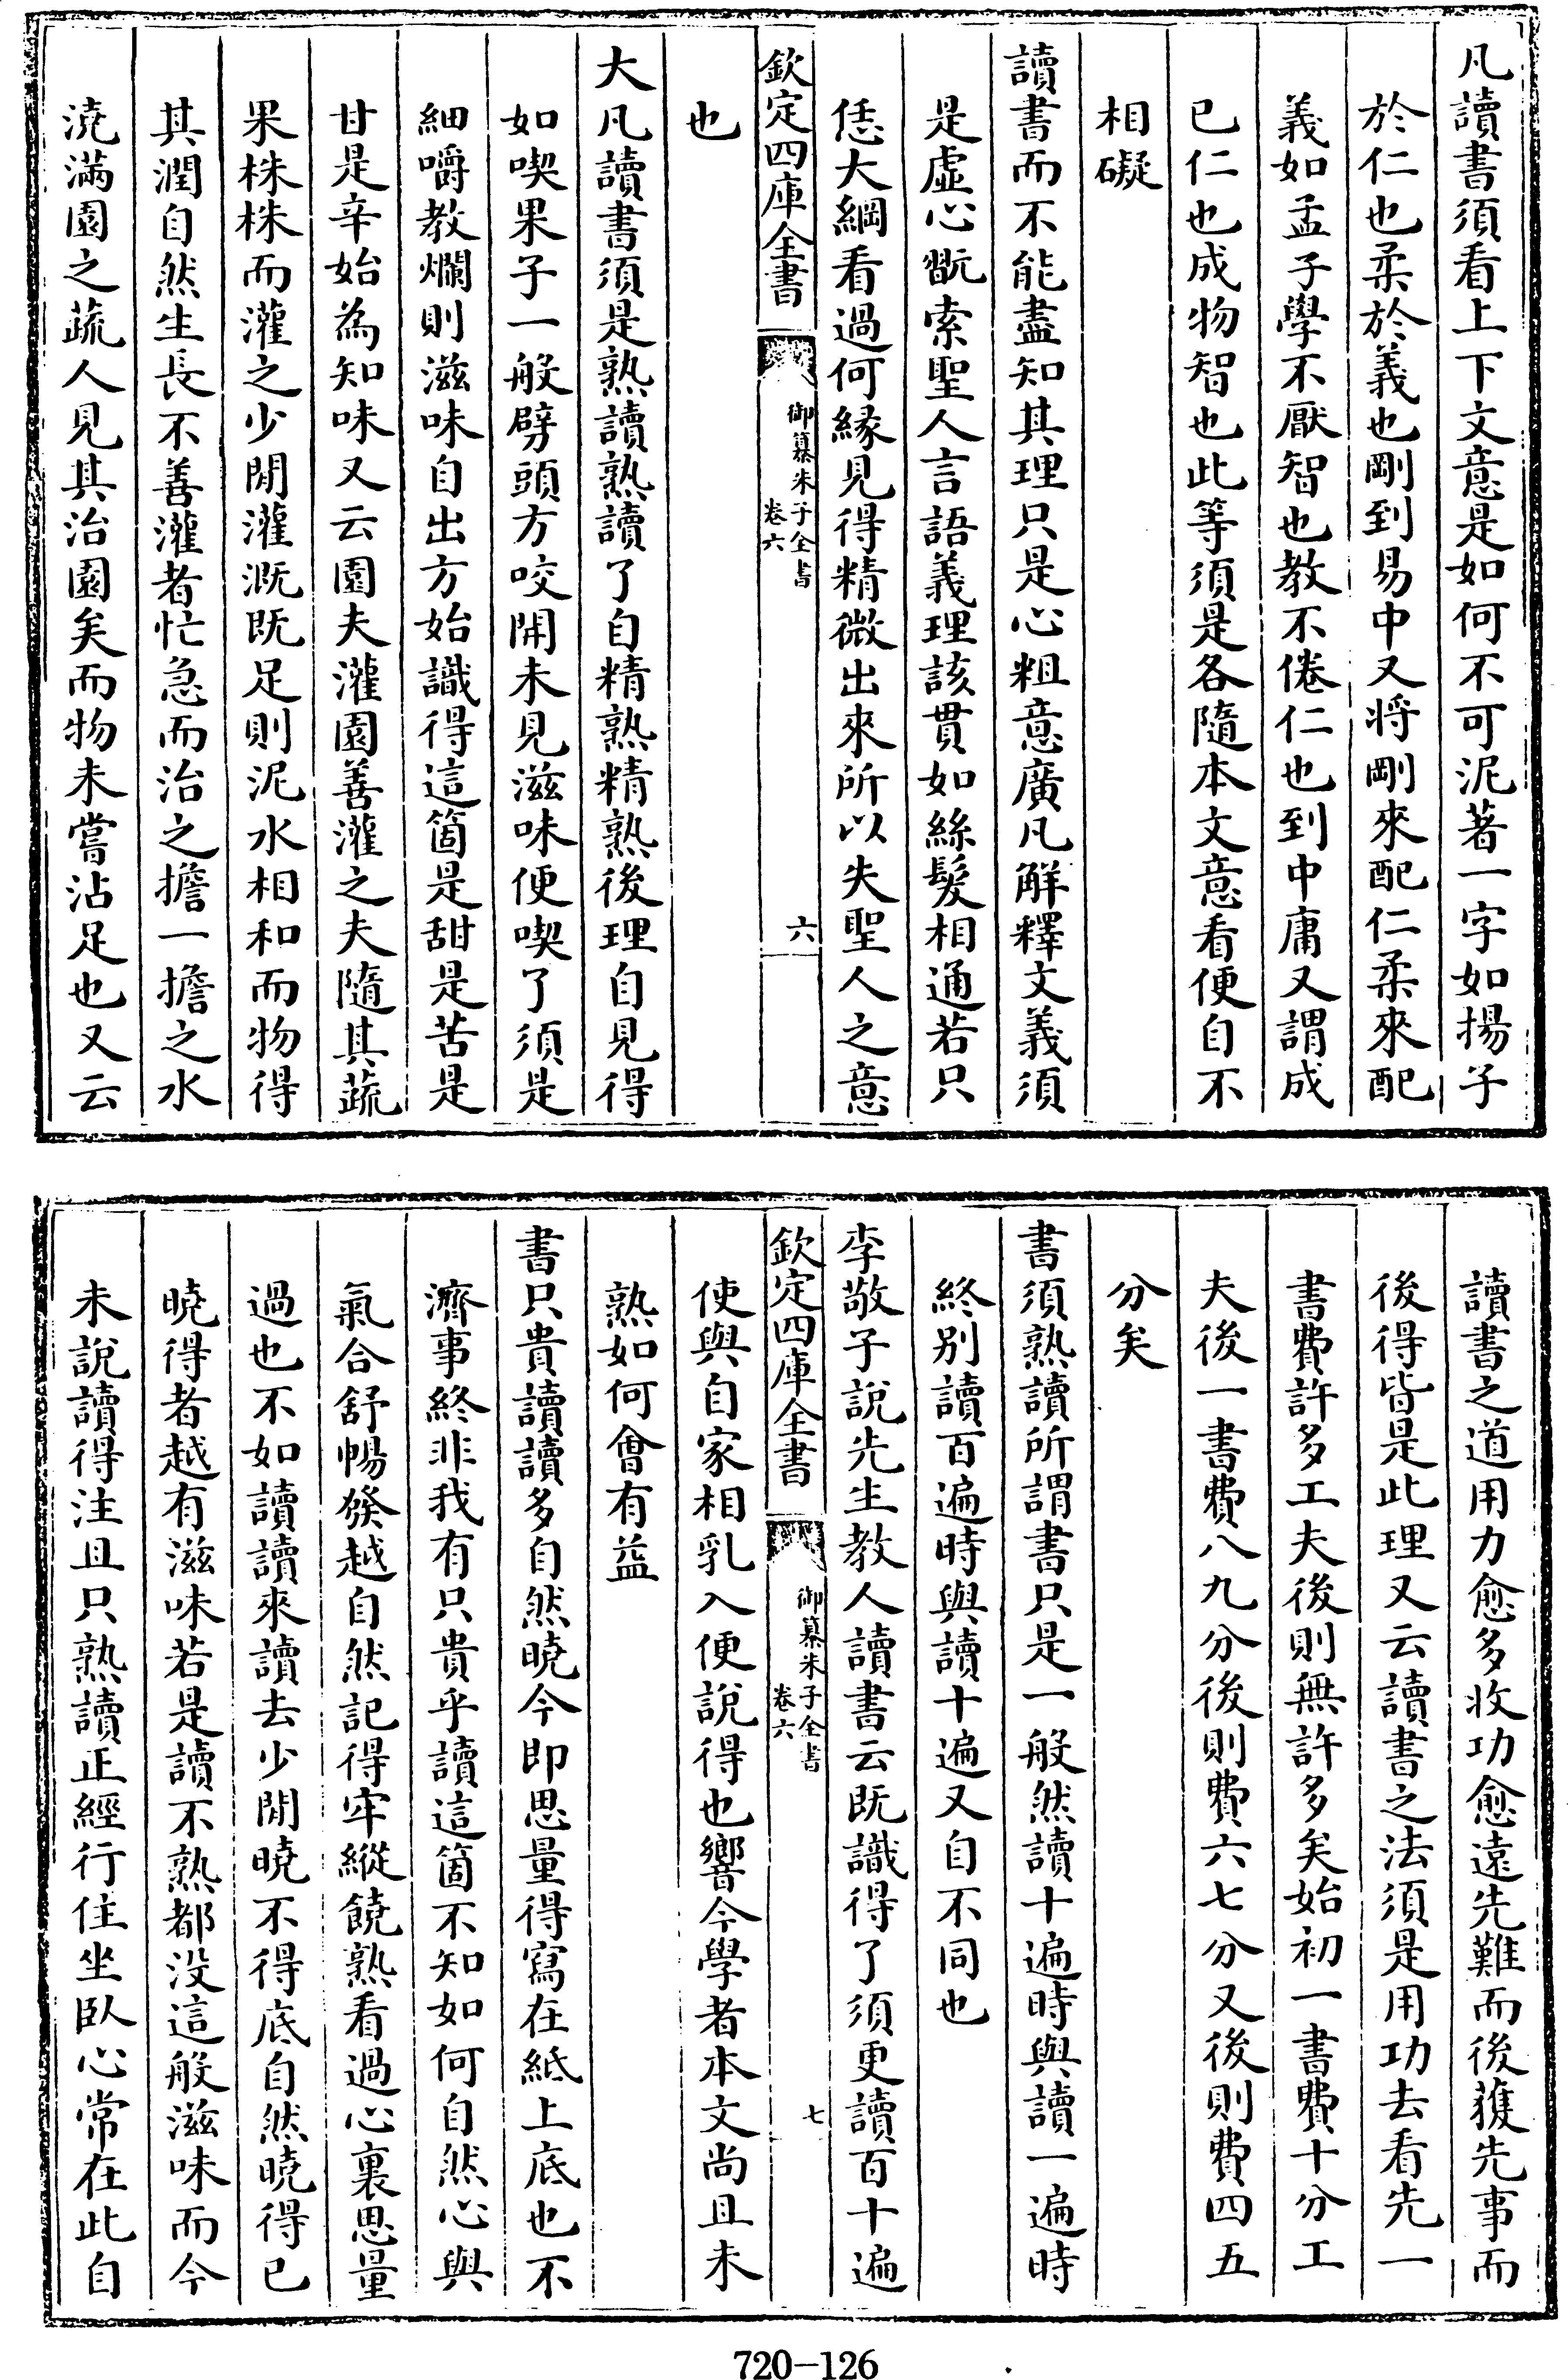 凡讀書須看上下文意是如何不可泥著一字如揚子
於仁也柔於義也剛到易中又将剛來配仁柔來配
義如孟子學不厭智也教不倦仁也到中庸又謂成
已仁也成物智也此等須是各隨本文意看便自不
相礙
讀書而不能盡知其理只是心粗意廣凡解釋文義須
是虛心翫索聖人言語義理該貫如絲髮相通若只
恁大綱看過何緣見得精微出來所以失聖人之意
欽定四庫全書
御纂朱子全書
卷六
六
也
大凡讀書須是熟讀熟讀了自精熟精熟後理自見得
如喫果子一般劈頭方咬開未見滋味便喫了須是
細嚼教爛則滋味自出方始識得這箇是甜是苦是
甘是辛始為知味又云園夫灌園善灌之夫隨其蔬
果株株而灌之少閒灌溉既足則泥水相和而物得
其潤自然生長不善灌者忙急而治之擔一擔之水
澆滿園之蔬人見其治園矣而物未嘗沾足也又云
讀書之道用力愈多收功愈遠先難而後獲先事而
後得皆是此理又云讀書之法須是用功去看先一
書費許多工夫後則無許多矣始初一書費十分工
夫後一書費八九分後則費六七分又後則費四五
分矣
書須熟讀所謂書只是一般然讀十遍時與讀一遍時
終别讀百遍時與讀十遍又自不同也
李敬子說先生教人讀書云既識得了須更讀百十遍
欽定四庫全書
御纂朱子全書
卷六
七
使與自家相乳入便說得也響今學者本文尚且未
熟如何會有益
書只貴讀讀多自然曉今即思量得寫在紙上底也不
濟事終非我有只貴乎讀這箇不知如何自然心與
氣合舒暢發越自然記得牢縱饒熟看過心裏思量
過也不如讀讀來讀去少閒曉不得底自然曉得已
曉得者越有滋味若是讀不熟都没這般滋味而今
未說讀得注且只熟讀正經行住坐臥心常在此自
720-126